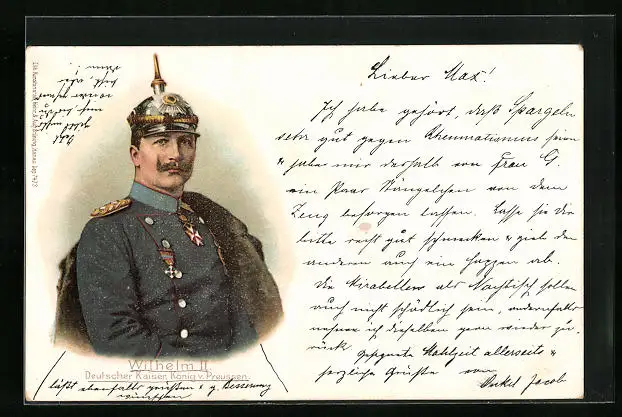 Lieber Max!
Ich habe gehört, daß Spargeln
sehr gut gegen Rheumatismus seien
u habe mir deshalb von Frau G.
ein Paar Stängelchen von dem
Zeug besorgen lassen. Lasse sie dir
bitte recht gut schmecken u gieb den
anderen auch ein Happen ab.
Die Mirabellen als Nachtisch sollen
auch nicht schädlich sein, andernfalls
nehme ich dieselben gern wieder zu-
rück gesegnete Mahlzeit allerseits u
herzliche Grüße von
Onkel Jacob
Wilhelm II
Deutscher Kaiser, König v. Preussen.
läßt ebenfalls grüßen u g. Besserung
wünschen